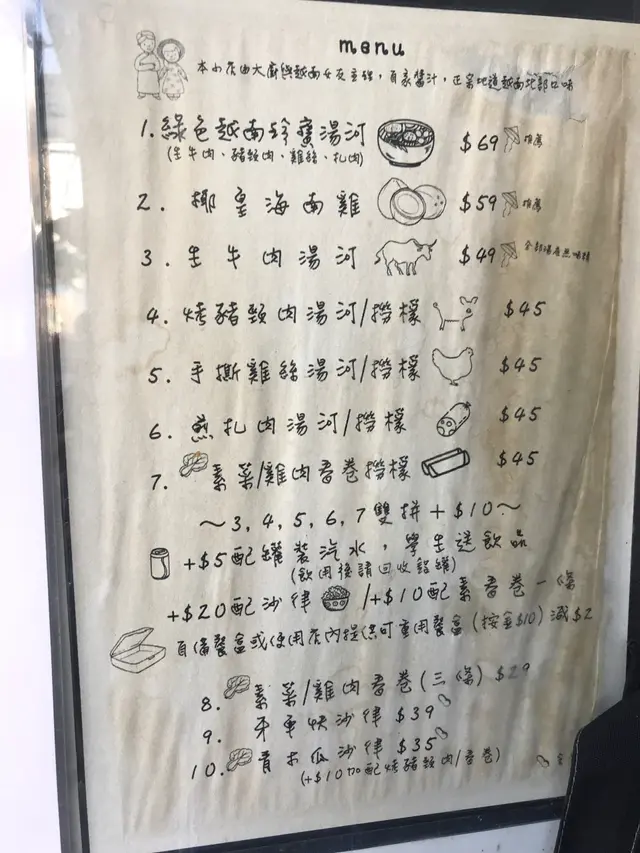 menu
本小店由大廚與越南女友主理，自家醬汁，正宗地道越南北部口味
1.綠色越南珍寶湯河 $69 推薦
(生牛肉、豬頸肉、雞絲、扎肉)
2. 椰皇海南雞 $59 推薦
3. 生牛肉湯河 $49
4. 烤豬頸肉湯河/撈檬 $45
5. 手撕雞絲湯河/撈檬 $45
6. 煎扎肉湯河/撈檬 $45
7. 素菜/雞肉春卷撈檬 $45
～3,4,5,6,7雙拼+$10～
+$5配罐裝汽水，學生送飲品
(飲用後請回收鋁罐)
+$20配沙律/+$10配素春卷一條
自備餐盒或使用店內提供可重用餐盒(按金$10)減$2
8. 素菜/雞肉春卷(三條) $29
9. 牛串伏沙律 $39
10. 青木瓜沙律 $35
(+$10加配烤豬頸肉/春卷)